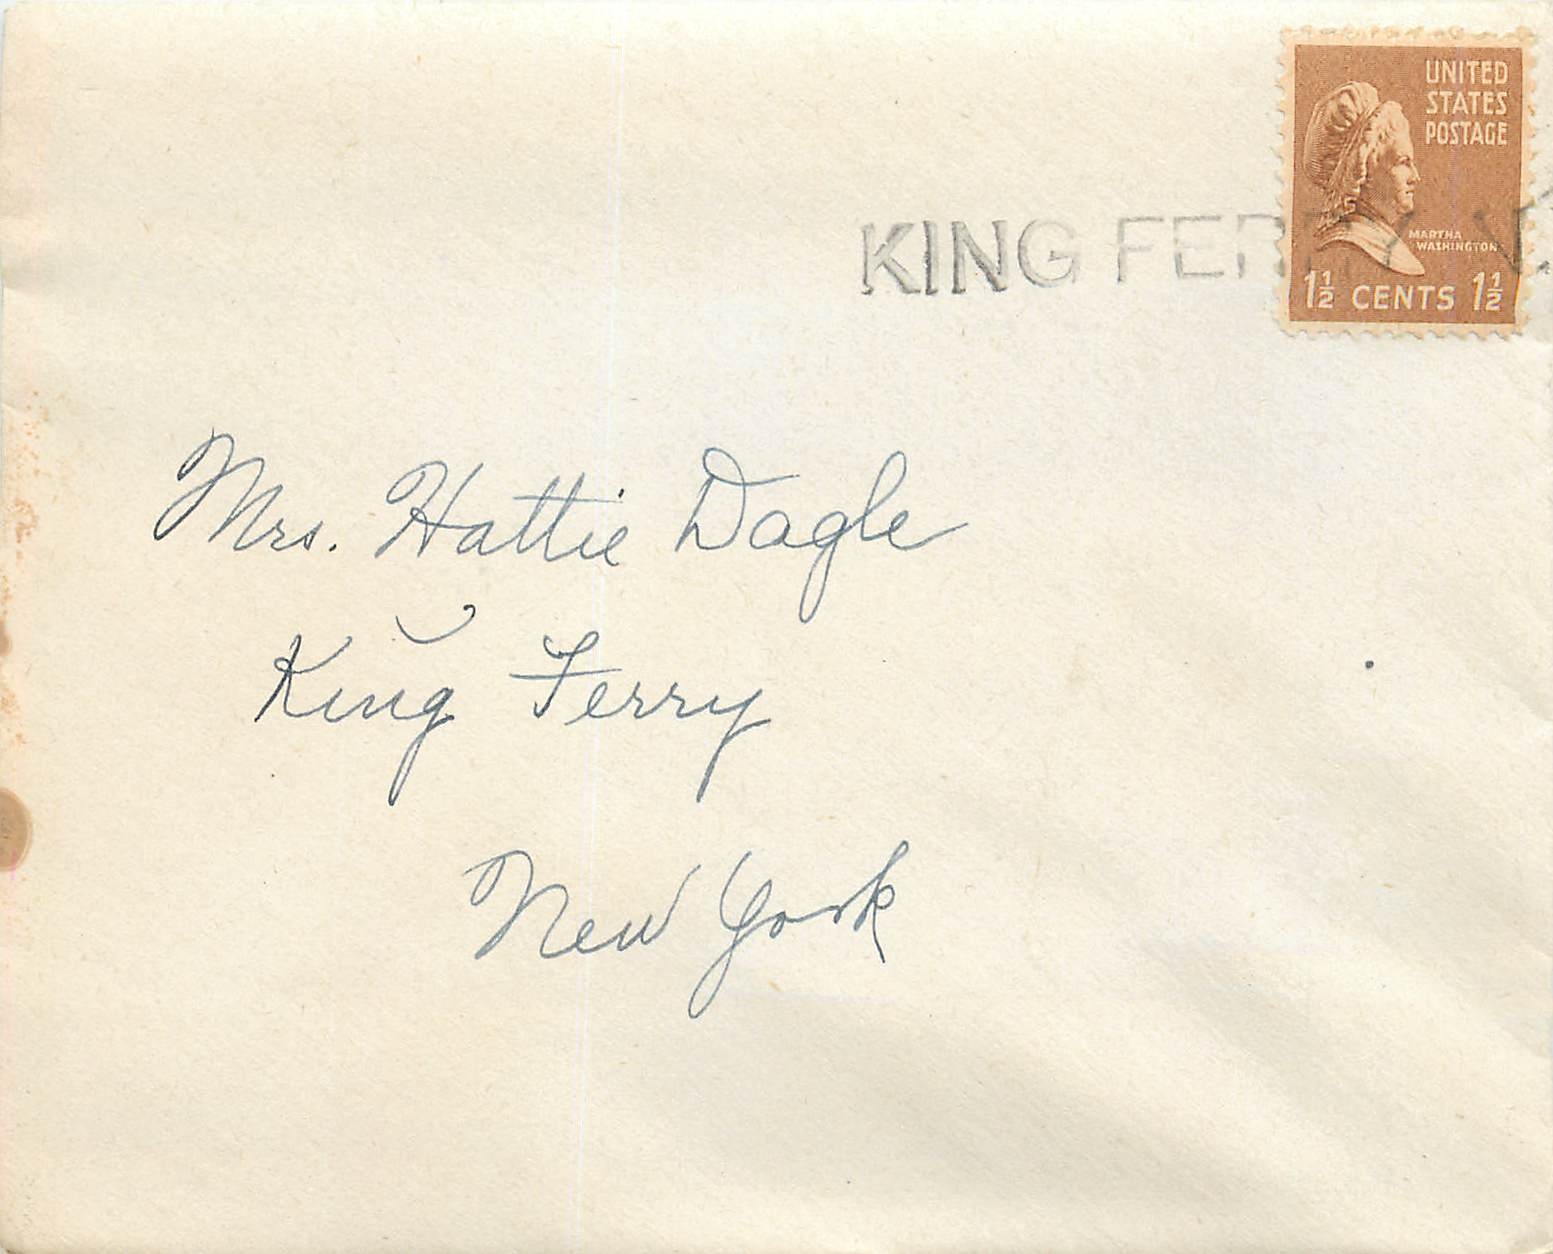 UNITED
STATES
POSTAGE
MARTHA
WASHINGTON
1½ CENTS 1½
KING FERRY
Mrs. Hattie Dagle
King Ferry
New York